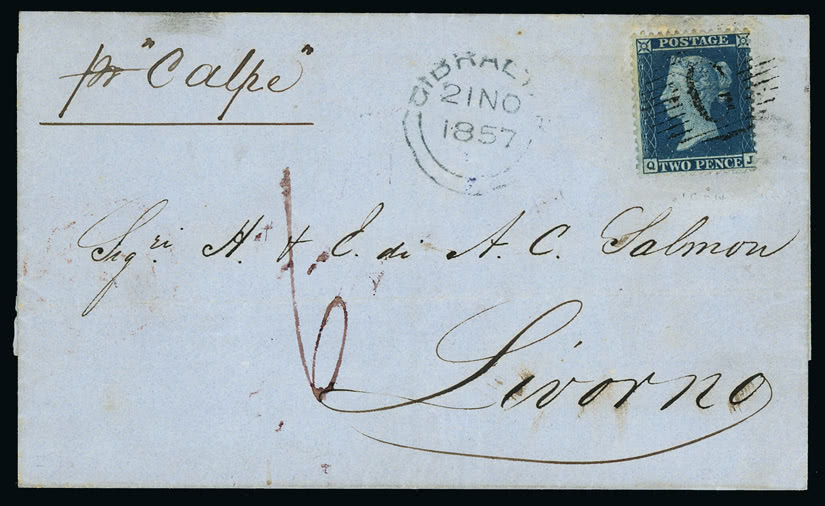 pr "Calpe"
GIBRALT
21 NO
1857
POSTAGE
G
Q TWO PENCE J
Sigri H. & E. di A. C. Salmon
6
Livorno